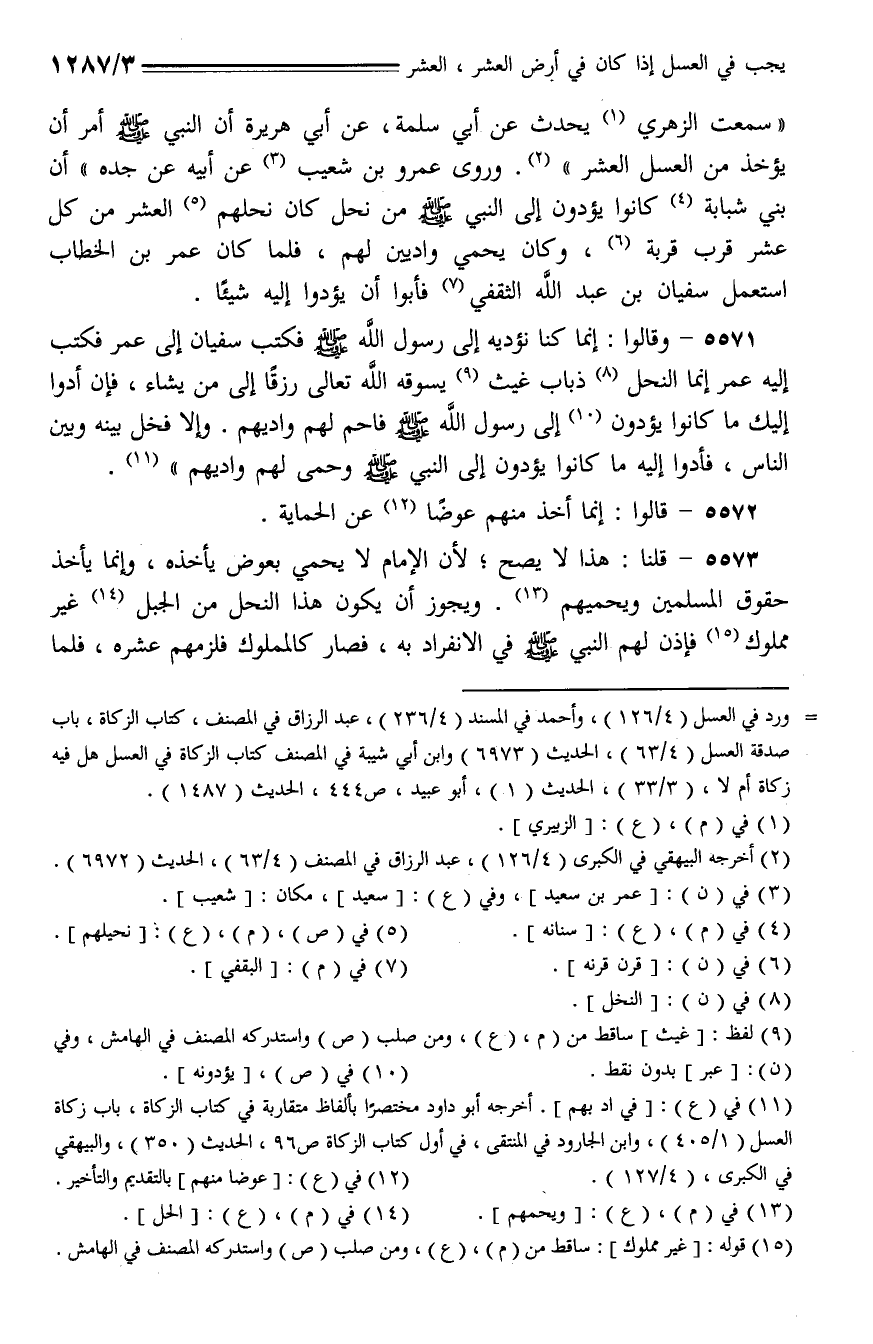 يجب في العسل إذا كان في أرض العشر ، العشر ١٢٨٧/٣
« سمعت الزهري (١) يحدث عن أبي سلمة، عن أبي هريرة أن النبي ﷺ أمر أن
يؤخذ من العسل العشر » (٢) . وروى عمرو بن شعيب (٣) عن أبيه عن جده » أن
بني شبابة (٤) كانوا يؤدون إلى النبي ﷺ من نحل كان نحلهم (٥) العشر من كل
عشر قرب قربة (٦) ، وكان يحمي واديين لهم ، فلما كان عمر بن الخطاب
استعمل سفيان بن عبد اللَّه الثقفي (٧) فأبوا أن يؤدوا إليه شيئًا .
٥٥٧١ – وقالوا : إنما كنا نؤديه إلى رسول اللَّه ﷺ فكتب سفيان إلى عمر فكتب
إليه عمر إنما النحل (٨) ذباب غيث (٩) يسوقه اللَّه تعالى رزقًا إلى من يشاء ، فإن أدوا
إليك ما كانوا يؤدون (١٠) إلى رسول اللَّه ﷺ فاحم لهم واديهم . وإلا فخل بينه وبين
الناس ، فأدوا إليه ما كانوا يؤدون إلى النبي ﷺ وحمى لهم واديهم » (١١) .
٥٥٧٢ – قالوا : إنما أخذ منهم عوضًا (١٢) عن الحماية .
٥٥٧٣ – قلنا : هذا لا يصح ؛ لأن الإمام لا يحمي بعوض يأخذه ، وإنما يأخذ
حقوق المسلمين ويحميهم (١٣) . ويجوز أن يكون هذا النحل من الجبل (١٤) غير
مملوك (١٥) فإذن لهم النبي ﷺ في الانفراد به ، فصار كالمملوك فلزمهم عشره ، فلما
= ورد في العسل ( ١٢٦/٤ ) ، وأحمد في المسند ( ٢٣٦/٤ ) ، عبد الرزاق في المصنف ، كتاب الزكاة ، باب
صدقة العسل ( ٦٣/٤ ) ، الحديث ( ٦٩٧٣ ) وابن أبي شيبة في المصنف كتاب الزكاة في العسل هل فيه
زكاة أم لا ، ( ٣٣/٣ ) ، الحديث ( ١ ) ، أبو عبيد ، ص٤٤٤ ، الحديث ( ١٤٨٧ ) .
(١) في ( م ) ، ( ع ) : [ الزبيري ] .
(٢) أخرجه البيهقي في الكبرى ( ١٢٦/٤ ) ، عبد الرزاق في المصنف ( ٦٣/٤ ) ، الحديث ( ٦٩٧٢ ) .
(٣) في ( ن ) : [ عمر بن سعيد ] ، وفي ( ع ) : [ سعيد ] ، مكان : [ شعيب ] .
(٤) في ( م ) ، ( ع ) : [ سنانه ] . (٥) في ( ص ) ، ( م ) ، ( ع ) : [ نحيلهم ] .
(٦) في ( ن ) : [ قرن قرنه ] . (٧) في ( م ) : [ البقفي ] .
(٨) في ( ن ) : [ النخل ] .
(٩) لفظ : [ غيث ] ساقط من ( م ، ( ع ) ، ومن صلب ( ص ) واستدركه المصنف في الهامش ، وفي
(ن) : [ عبر ] بدون نقط . (١٠) في ( ص ) ، [ يؤدونه ] .
(١١) في ( ع ) : [ في اد بهم ] . أخرجه أبو داود مختصرًا بألفاظ متقاربة في كتاب الزكاة ، باب زكاة
العسل ( ٤٠٥/١ ) ، وابن الجارود في المنتقى ، في أول كتاب الزكاة ص٩٦ ، الحديث ( ٣٥٠ ) ، والبيهقي
في الكبرى ، ( ١٢٧/٤ ) . (١٢) في ( ع ) : [ عوضا منهم ] بالتقديم والتأخير .
(١٣) في ( م ) ، ( ع ) : [ ويحمهم ] . (١٤) في ( م ) ، ( ع ) : [ الحل ] .
(١٥) قوله : [ غير مملوك ] : ساقط من ( م ) ، ( ع ) ، ومن صلب ( ص ) واستدركه المصنف في الهامش .